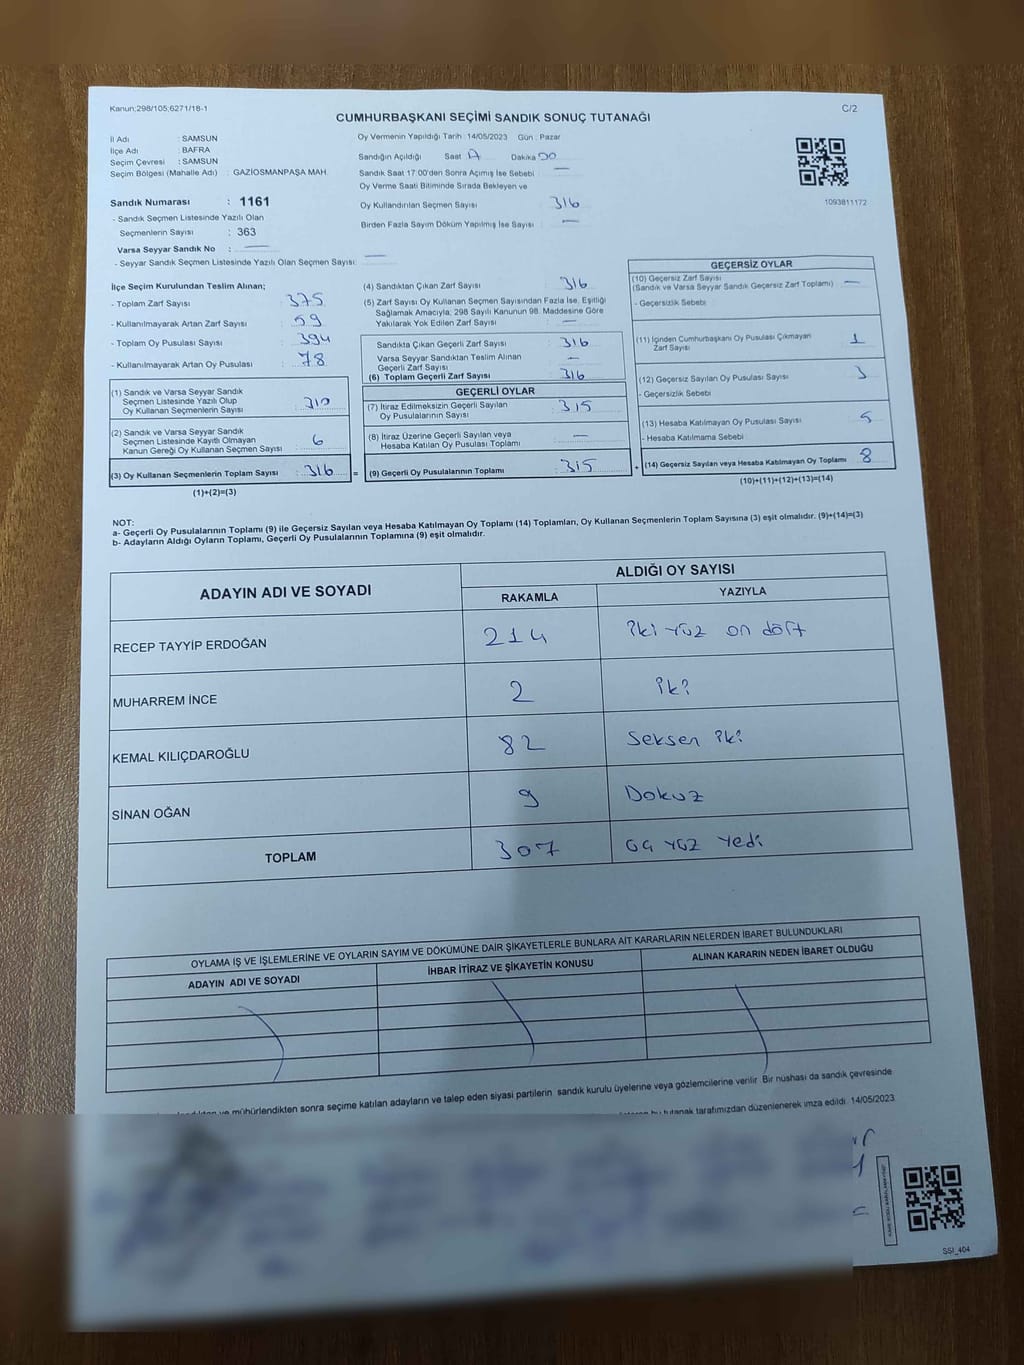 Kanun:298/105;6271/18-1
C/2
CUMHURBAŞKANI SEÇİMİ SANDIK SONUÇ TUTANAĞI
İl Adı : SAMSUN
İlçe Adı : BAFRA
Seçim Çevresi : SAMSUN
Seçim Bölgesi (Mahalle Adı) : GAZİOSMANPAŞA MAH.
Sandık Numarası : 1161
- Sandık Seçmen Listesinde Yazılı Olan
Seçmenlerin Sayısı : 363
Varsa Seyyar Sandık No : —
- Seyyar Sandık Seçmen Listesinde Yazılı Olan Seçmen Sayısı: —
Oy Vermenin Yapıldığı Tarih : 14/05/2023 Gün : Pazar
Sandığın Açıldığı Saat Dakika 00
Sandık Saat 17:00'den Sonra Açımış İse Sebebi : —
Oy Verme Saati Bitiminde Sırada Bekleyen ve
Oy Kullandırılan Seçmen Sayısı : 316
Birden Fazla Sayım Döküm Yapılmış İse Sayısı : —
1093811172
İlçe Seçim Kurulundan Teslim Alınan;
- Toplam Zarf Sayısı : 375
- Kullanılmayarak Artan Zarf Sayısı : 59
- Toplam Oy Pusulası Sayısı : 394
- Kullanılmayarak Artan Oy Pusulası : 78
(1) Sandık ve Varsa Seyyar Sandık
Seçmen Listesinde Yazılı Olup
Oy Kullanan Seçmenlerin Sayısı : 310
(2) Sandık ve Varsa Seyyar Sandık
Seçmen Listesinde Kayıtlı Olmayan
Kanun Gereği Oy Kullanan Seçmen Sayısı : 6
(3) Oy Kullanan Seçmenlerin Toplam Sayısı : 316
(1)+(2)=(3)
=
(4) Sandıktan Çıkan Zarf Sayısı : 316
(5) Zarf Sayısı Oy Kullanan Seçmen Sayısından Fazla İse, Eşitliği
Sağlamak Amacıyla; 298 Sayılı Kanunun 98. Maddesine Göre
Yakılarak Yok Edilen Zarf Sayısı : —
Sandıkta Çıkan Geçerli Zarf Sayısı : 316
Varsa Seyyar Sandıktan Teslim Alınan
Geçerli Zarf Sayısı : —
(6) Toplam Geçerli Zarf Sayısı : 316
GEÇERLİ OYLAR
(7) İtiraz Edilmeksizin Geçerli Sayılan
Oy Pusulalarının Sayısı : 315
(8) İtiraz Üzerine Geçerli Sayılan veya
Hesaba Katılan Oy Pusulası Toplamı : —
(9) Geçerli Oy Pusulalarının Toplamı : 315
+
GEÇERSİZ OYLAR
(10) Geçersiz Zarf Sayısı
(Sandık ve Varsa Seyyar Sandık Geçersiz Zarf Toplamı) : —
- Geçersizlik Sebebi
(11) İçinden Cumhurbaşkanı Oy Pusulası Çıkmayan
Zarf Sayısı : 1
(12) Geçersiz Sayılan Oy Pusulası Sayısı : 3
- Geçersizlik Sebebi
(13) Hesaba Katılmayan Oy Pusulası Sayısı : 5
- Hesaba Katılmama Sebebi
(14) Geçersiz Sayılan veya Hesaba Katılmayan Oy Toplamı : 8
(10)+(11)+(12)+(13)=(14)
NOT:
a- Geçerli Oy Pusulalarının Toplamı (9) ile Geçersiz Sayılan veya Hesaba Katılmayan Oy Toplamı (14) Toplamları, Oy Kullanan Seçmenlerin Toplam Sayısına (3) eşit olmalıdır. (9)+(14)=(3)
b- Adayların Aldığı Oyların Toplamı, Geçerli Oy Pusulalarının Toplamına (9) eşit olmalıdır.
ADAYIN ADI VE SOYADI
ALDIĞI OY SAYISI
RAKAMLA YAZIYLA
RECEP TAYYİP ERDOĞAN 214 iki yüz on dört
MUHARREM İNCE 2 iki
KEMAL KILIÇDAROĞLU 82 Seksen iki
SİNAN OĞAN 9 Dokuz
TOPLAM 307 üç yüz yedi
OYLAMA İŞ VE İŞLEMLERİNE VE OYLARIN SAYIM VE DÖKÜMÜNE DAİR ŞİKAYETLERLE BUNLARA AİT KARARLARIN NELERDEN İBARET BULUNDUKLARI
ADAYIN ADI VE SOYADI İHBAR İTİRAZ VE ŞİKAYETİN KONUSU ALINAN KARARIN NEDEN İBARET OLDUĞU
ve mühürlendikten sonra seçime katılan adayların ve talep eden siyasi partilerin sandık kurulu üyelerine veya gözlemcilerine verilir. Bir nüshası da sandık çevresinde
bu tutanak tarafımızdan düzenlenerek imza edildi. 14/05/2023
SSI_404